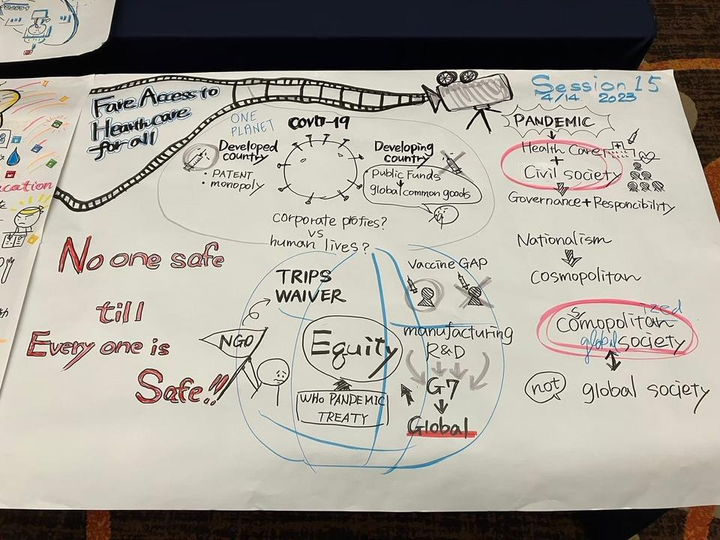 Fare Access to
Healthcare
for all
ONE
PLANET
COVID-19
Developed
country
• PATENT
• monopoly
Developing
country
Public Funds
global common goods
corporate profies?
vs
human lives?
Session 15
4/14 2023
PANDEMIC
Health Care
+
Civil society
Governance + Responcibility
Nationalism
Cosmopolitan
Cosmopolitan
ized
global society
not global society
No one safe
till
Every one is
Safe!!!
TRIPS
WAIVER
NGO
Equity
WHO PANDEMIC
TREATY
Vaccine GAP
manufacturing
R&D
G7
Global
ucation